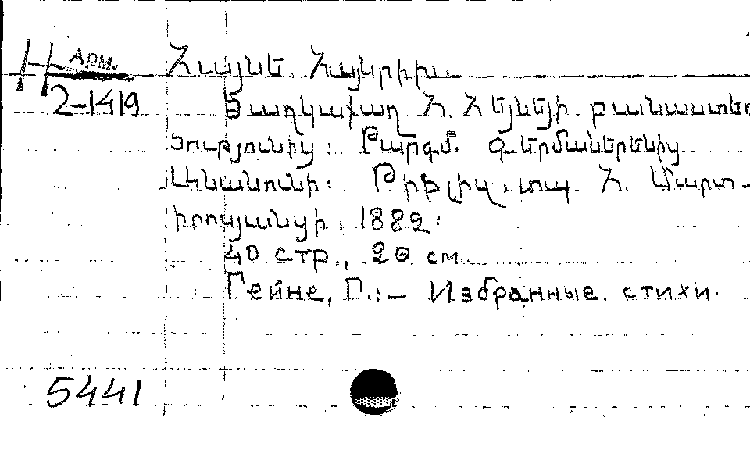 Н Арм.
2-1419
Հայնե, Հայնրիխ.
Ծաղկաքաղ Հ. Հեյնեյի բանաստեղ
ծությունից: Թարգմ. գերմաներենից
Լ. Թիֆլիզ, տպ. Հ. Մարտ-
իրոսյանցի, 1882:
40 стр., 20 см.
Гейне, Г.:- Избранные стихи.
5441